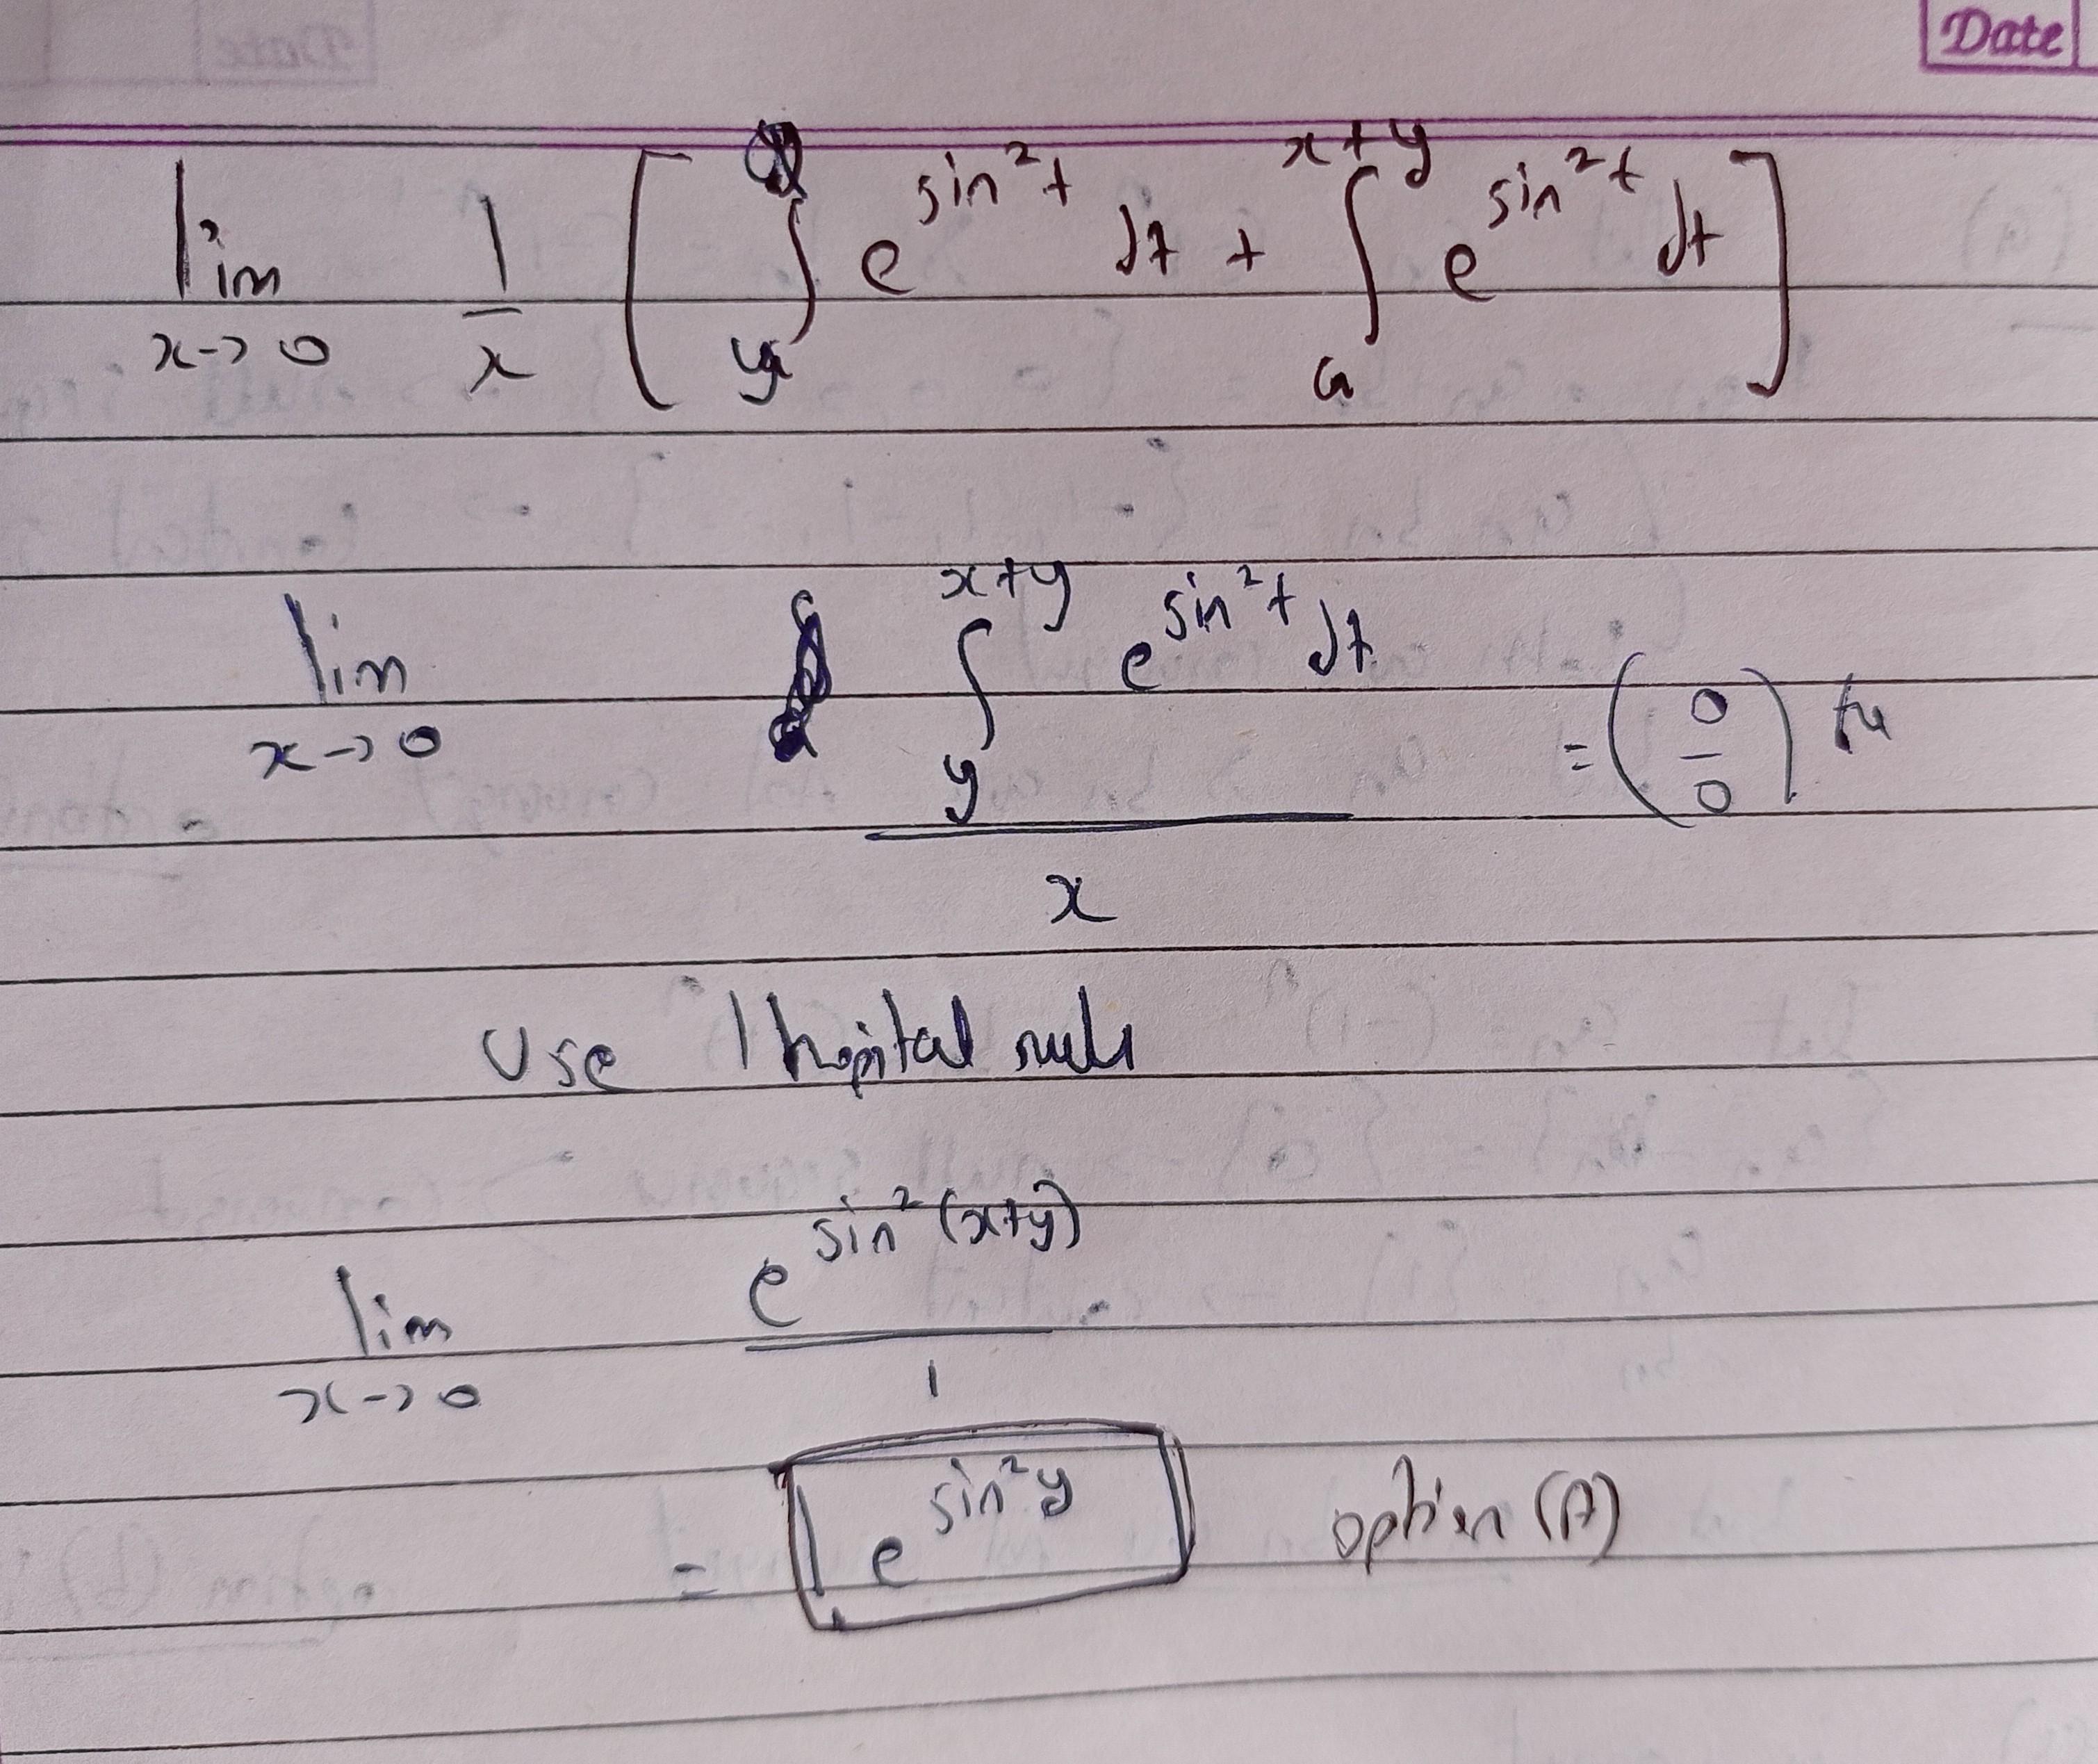 Date
lim x→0 1/x [ ∫_y e^{sin²t} dt + ∫_a^{x+y} e^{sin²t} dt ]
lim x→0 ∫_y^{x+y} e^{sin²t} dt / x = (0/0)
Use l hopital rule
lim x→0 e^{sin²(x+y)} / 1
= e^{sin²y} option (A)